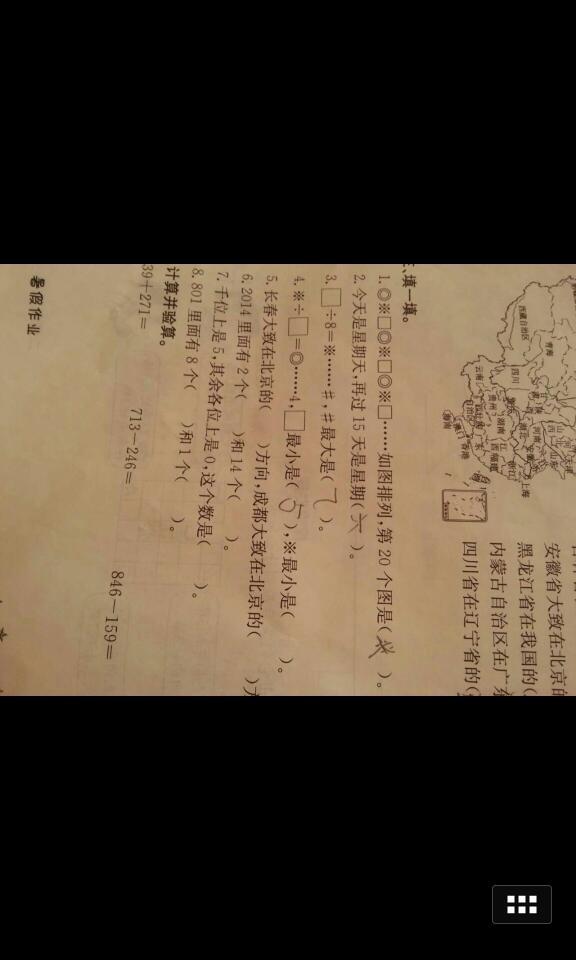 西藏自治区
青海
四川
云南
贵州
湖南
河南
山东
上海
香港
海南
安徽省大致在北京的
黑龙江省在我国的(
内蒙古自治区在广东
四川省在辽宁省的(
、填一填。
1.◎※□◎※□◎※□……如图排列,第 20 个图是( ※ )。
2.今天是星期天,再过 15 天是星期( )。
3.□÷8=※……#,#最大是( 7 )。
4.※÷□=◎……4,□最小是( 5 ),※最小是( )。
5.长春大致在北京的( )方向,成都大致在北京的( )方
6.2014 里面有 2 个( )和 14 个( )。
7.千位上是 5,其余各位上是 0,这个数是( )。
8.801 里面有 8 个( )和 1 个( )。
计算并验算。
39+271= 713-246= 846-159=
暑假作业